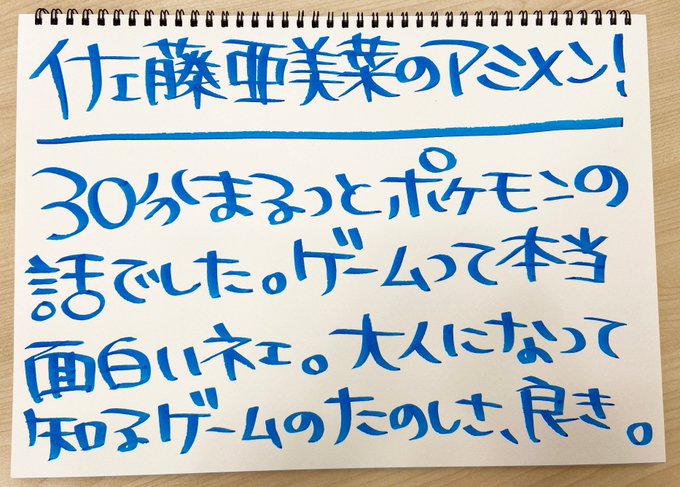 佐藤亜美菜のアミメン!
30分まるっとポケモンの
話でした。ゲームって本当
面白いネェ。大人になって
知るゲームのたのしさ、良き。